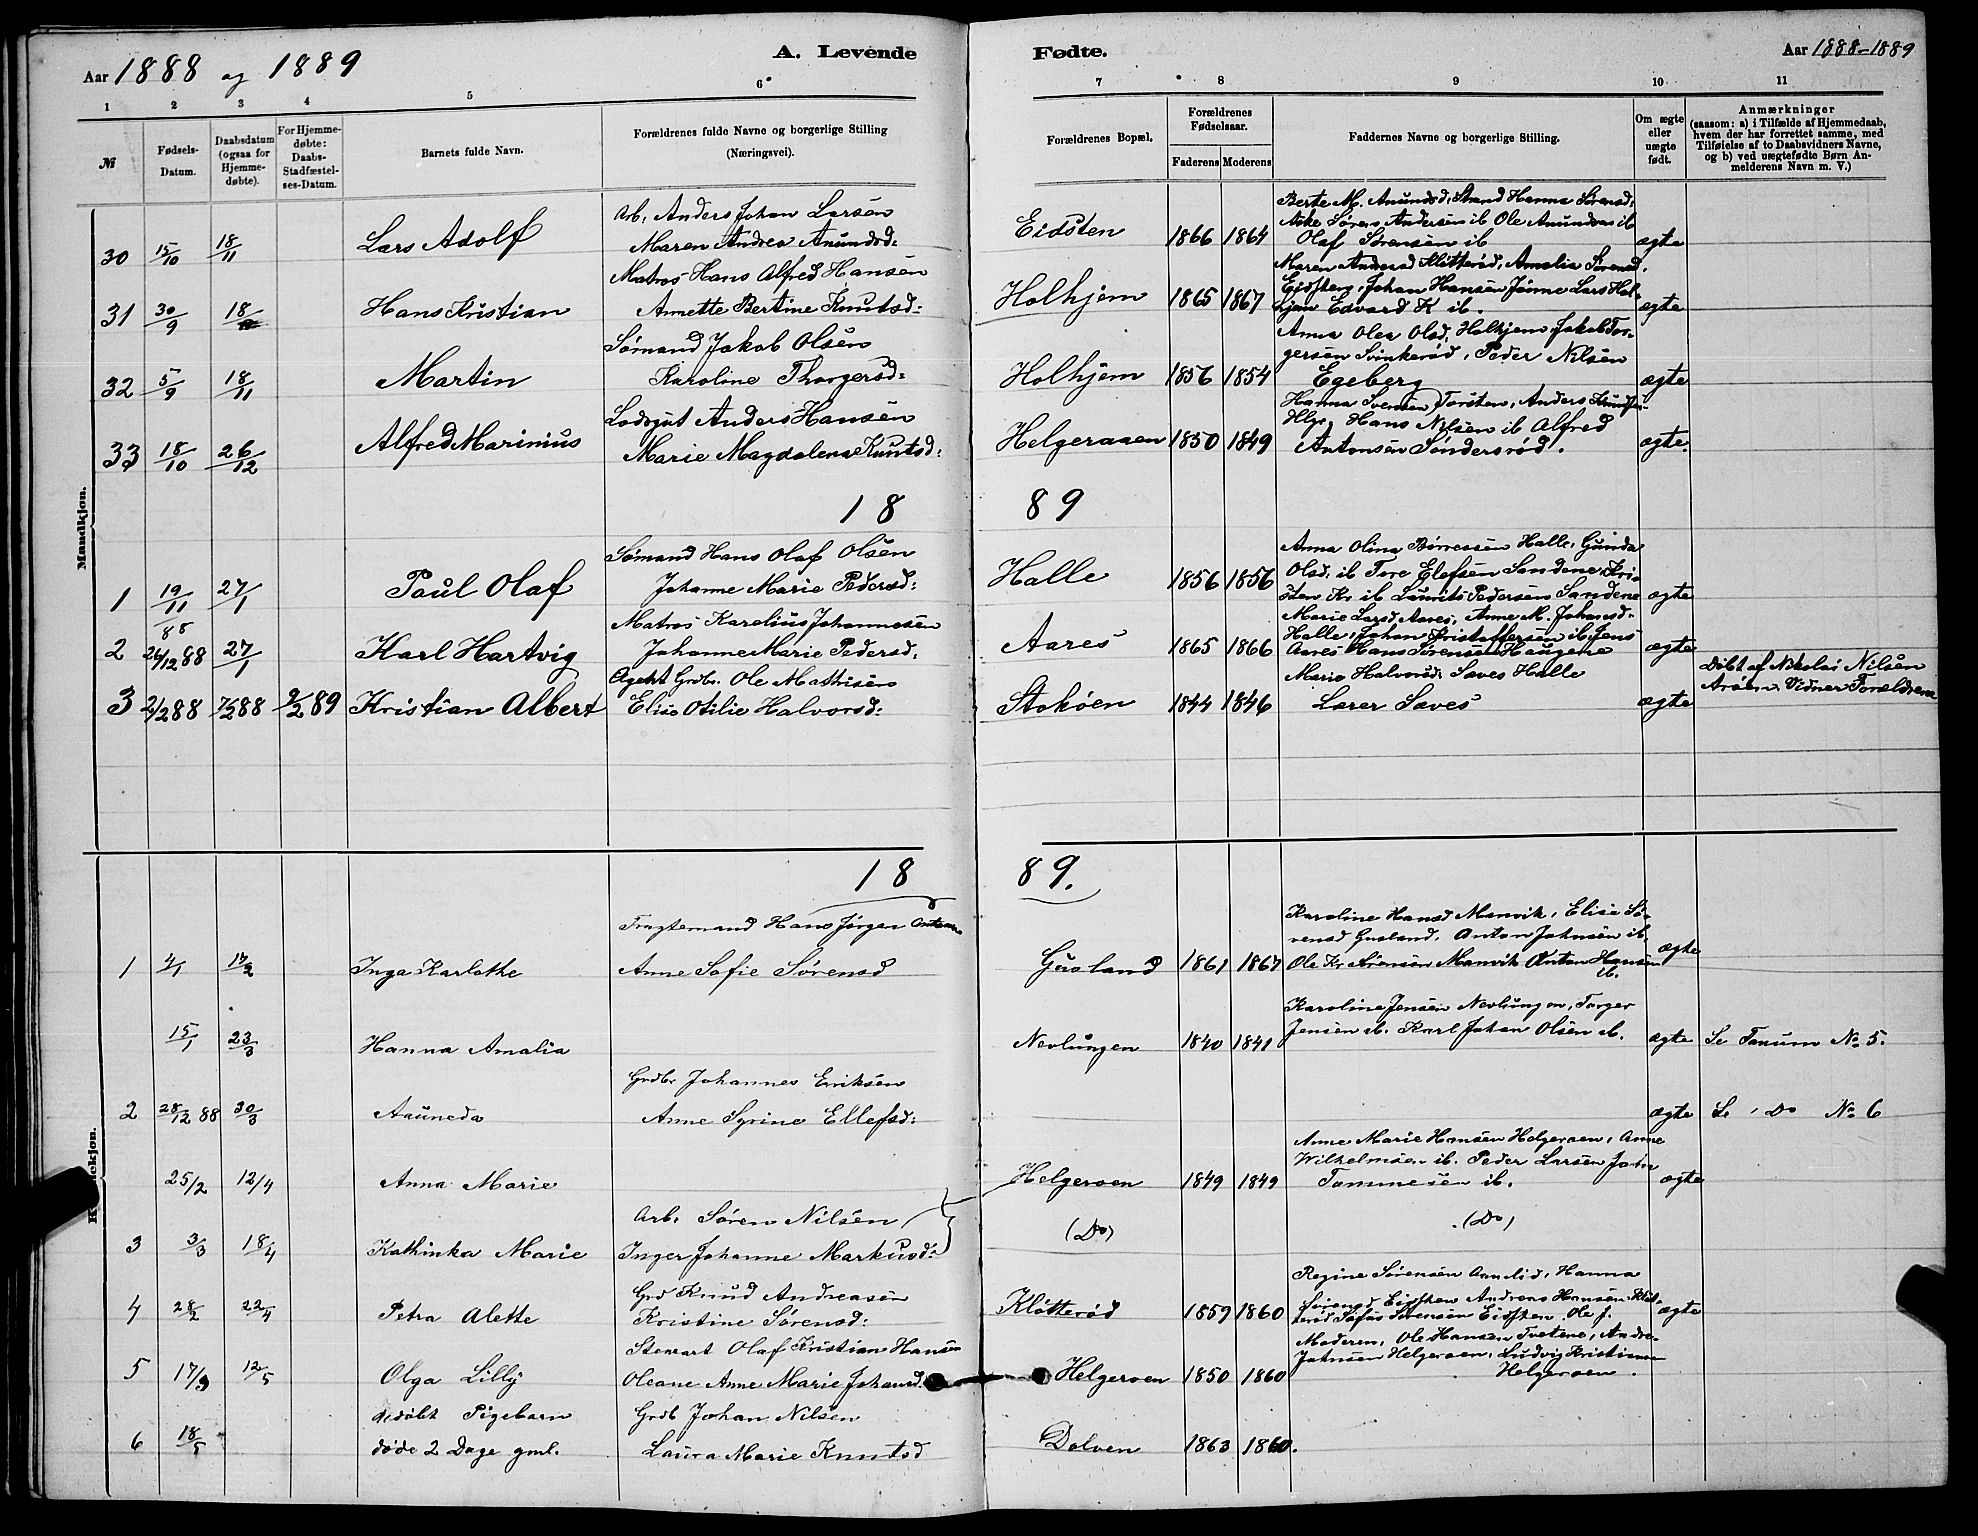 Aar 1888 og 1889
A. Levende Fødte.
Aar 1888-1889
1 2 3 4 5 6 7 8 9 10 11
№
Fødsels-Datum.
Daabsdatum (ogsaa for Hjemme-døbte).
For Hjemme-døbte: Daabs-Stadfæstel-ses-Datum.
Barnets fulde Navn.
Forældrenes fulde Navne og borgerlige Stilling (Næringsvei).
Forældrenes Bopæl.
Forældrenes Fødselsaar.
Faderens Moderens
Faddernes Navne og borgerlige Stilling.
Om ægte eller uægte født.
Anmærkninger
(saasom: a) i Tilfælde af Hjemmedaab,
hvem der har forrettet samme, med
Tilføielse af to Daabsvidners Navne,
og b) ved uægtefødte Børn An-
melderens Navn m. V.)
Mandkjøn.
Arb. Anders Johan Larsen
30 15/10 18/11 Lars Adolf Maren Andrea Anundsd:
Eidsten 1866 1864
Berte M. Anundsd. Strand Hanna Sørensd:
Aske Søren Andersen ib Ole Anundsen ib
Olaf Sørensen ib ægte
Matros Hans Alfred Hansen
31 30/9 18/11 Hans Kristian Annette Bertine Knutsd:
Holhjem 1865 1867
Maren Andersd Kløtterød, Amalia Sørensd.
Eidsten, Johan Hansen Jønne Lars Hol-
hjem Edvard K ib. ægte
Sømand Jakob Olsen
32 5/9 18/11 Martin Karoline Thorgersd:
Holhjem 1856 1854
Anna Olea Olsd. Holhjem Jakob Tor-
gersen Svinkerød, Peder Nilsen
Egeberg ægte
Lodsgut Anders Hansen
33 18/10 26/12 Alfred Marinius Marie Magdalena Knutsd:
Helgeraaen 1850 1849
Hanna Svensen Torsten, Anders Knudsen
Hlgr, Hans Nilsen ib Alfred
Antonsen Søndersrød. ægte.
18 89
Sømand Hans Olaf Olsen
1 19/11 88 27/1 Paul Olaf Johanne Marie Pedersd:
Halle 1856 1856
Anna Olina Børresen Halle, Gunda
Olsd. ib Tore Elefsen Sandene, Kri-
sten Kr ib Laurits Pedersen Sandene ægte
Matros Karelius Johannesen
2 26/12 88 27/1 Karl Hartvig Johanne Marie Pedersd.
Aares 1865 1866
Marie Larsd Aares, Anne M. Johansd.
Halle, Johan Kristoffersen ib, Jens
Aares Hans Sørensen Haugene ægte
Agent Grdbr. Ole Mathisen
3 2/2 88 7/2 88 2/2 89 Kristian Albert Elise Otilie Halvorsd:
Stokøen 1844 1846
Marie Halvorsd. Saves Halle
Lærer Saves ægte
Døbt af Nikolai Nilsen
Arøen. Vidner Forældrene
18 89.
Kvindekjøn.
Fragtemand Hans Jørgen Antonsen
1 4/1 17/2 Inga Karlotte Anne Sofie Sørensd
Gusland 1861 1867
Karoline Hansd Manvik, Elise Sø-
rensd Gusland. Anton Johnsen ib.
Ole Kr Sørensen Manvik Anton Hansen
ib. ægte
15/1 23/3 Hanna Amalia
Nevlungen 1840 1841
Karoline Jensen Nevlungen, Torger
Jensen ib. Karl Johan Olsen ib. ægte Se Tanum No 5.
Grdbr Johannes Eriksen
2 28/12 88 30/3 Aauneda Anne Syrine Ellefsd:
ægte Se Do No 6
25/2 12/4 Anna Marie
Helgeroen 1849 1849
Anne Marie Hansen Helgeroen, Anne
Wilhelmsen ib. Peder Larsen John
Tommesen ib. ægte
Arb. Søren Nilsen
3 3/3 18/4 Kathinka Marie Inger Johanne Markusd:
(Do) (Do)
Grd Knud Andreasen
4 28/2 22/4 Petra Alette Kristine Sørensd:
Kløtterød 1859 1860
Regine Sørensen Omlid, Hanna
Sørensd Eidsten Andreas Hansen Kløt-
terød Sofus Sørensen Eidsten. Ole J. ægte
Stewart Olaf Kristian Hansen
5 17/3 12/5 Olga Lilly Oleane Anne Marie Johansd.
Helgeroen 1850 1860
Moderen, Ole Hansen Tvetene, Andre-
Johnsen Helgeroen, Ludvig Kristiansen
Helgeroen.
Grdb Johan Nilsen
6 18/5 udøbt Pigebarn
døde 2 Dage gml. Laura Marie Knutsd
Dolven 1863 1860.